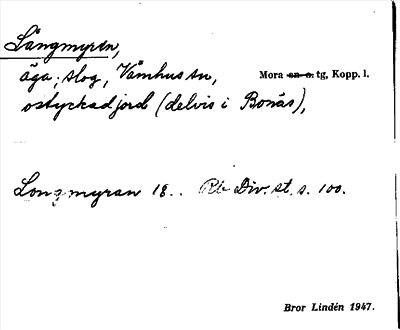 Långmyren,
äga, slog, Våmhus sn, Mora sn o. tg, Kopp. l.
ostyckad jord (delvis i Bonäs),
Longmyran 18.. Rb Div. st. s. 100.
Bror Lindén 1947.